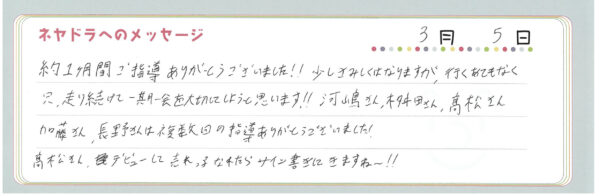 ネヤドラへのメッセージ
3月 5日
約1ヶ月間ご指導ありがとうございました!! 少しさみしくはなりますが、行くあてもなく
只、走り続けて一期一会を大切にしようと思います!! 河嶋さん、本田さん、髙松さん
加藤さん、長野さんは複数回の指導ありがとうございました!
髙松さん、デビューして売れっ子なれたらサイン書きにきますね〜!!